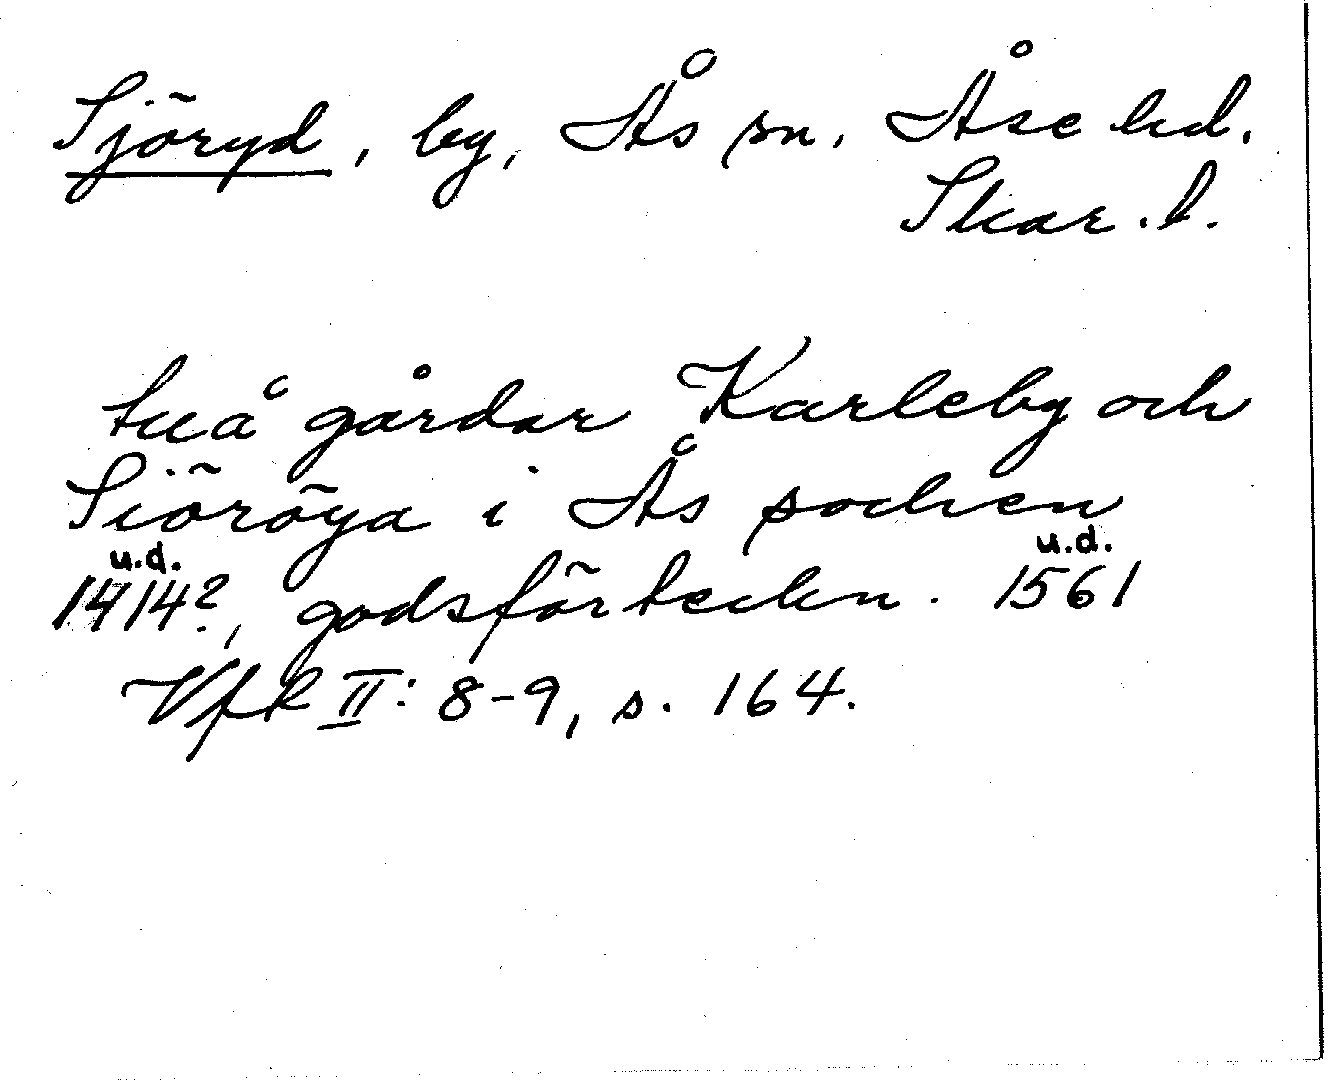 Sjöryd, by, Ås sn, Åse hd.
Skar. l.
tuå gårdar Karleby och
Siöröya i Ås sochen
u.d. u.d.
1414?, godsförteckn. 1561
VfR II: 8-9, s. 164.